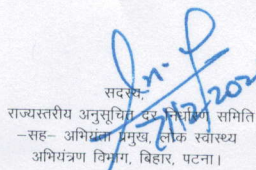 सदस्य,
राज्यस्तरीय अनुसूचित दर निर्धारण समिति
-सह- अभियंता प्रमुख, लोक स्वास्थ्य
अभियंत्रण विभाग, बिहार, पटना।